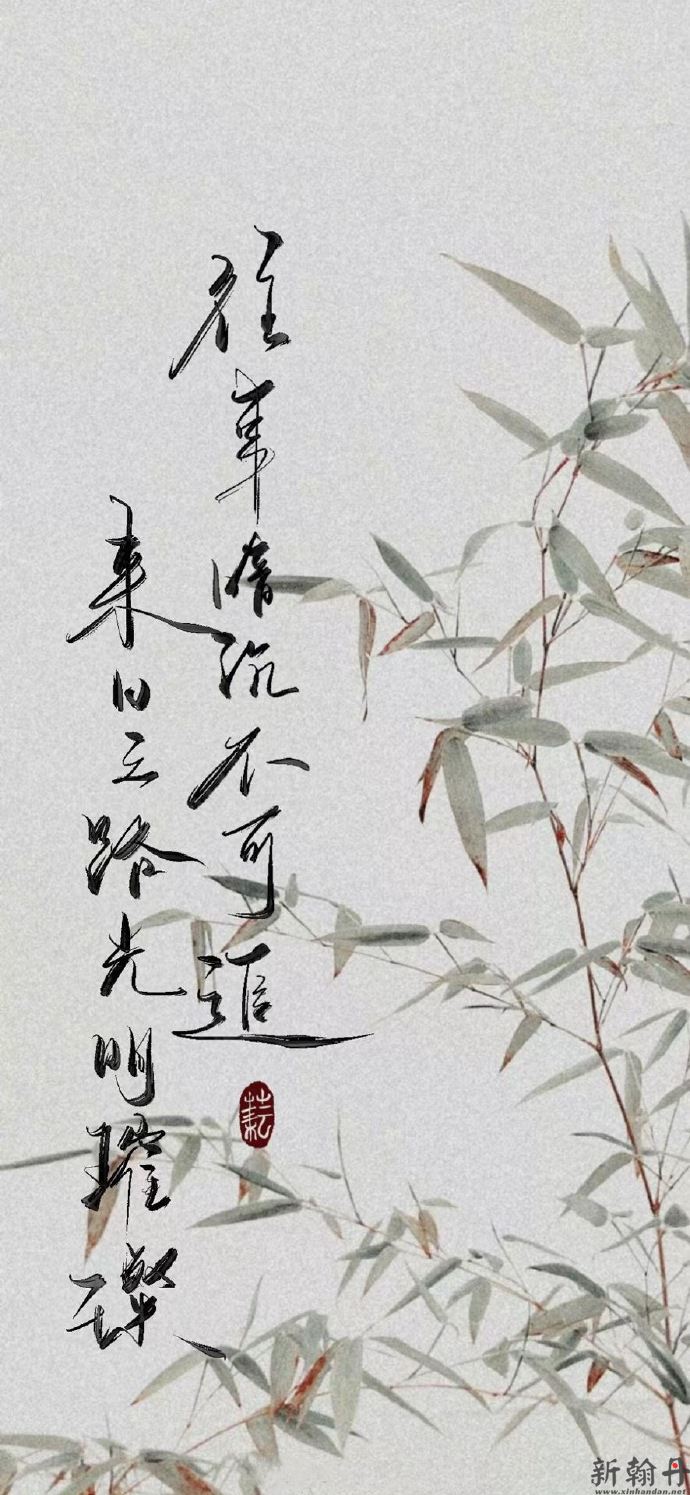 往事暗沉不可追
来日之路光明璀璨
新翰丹
www.xinhandan.net